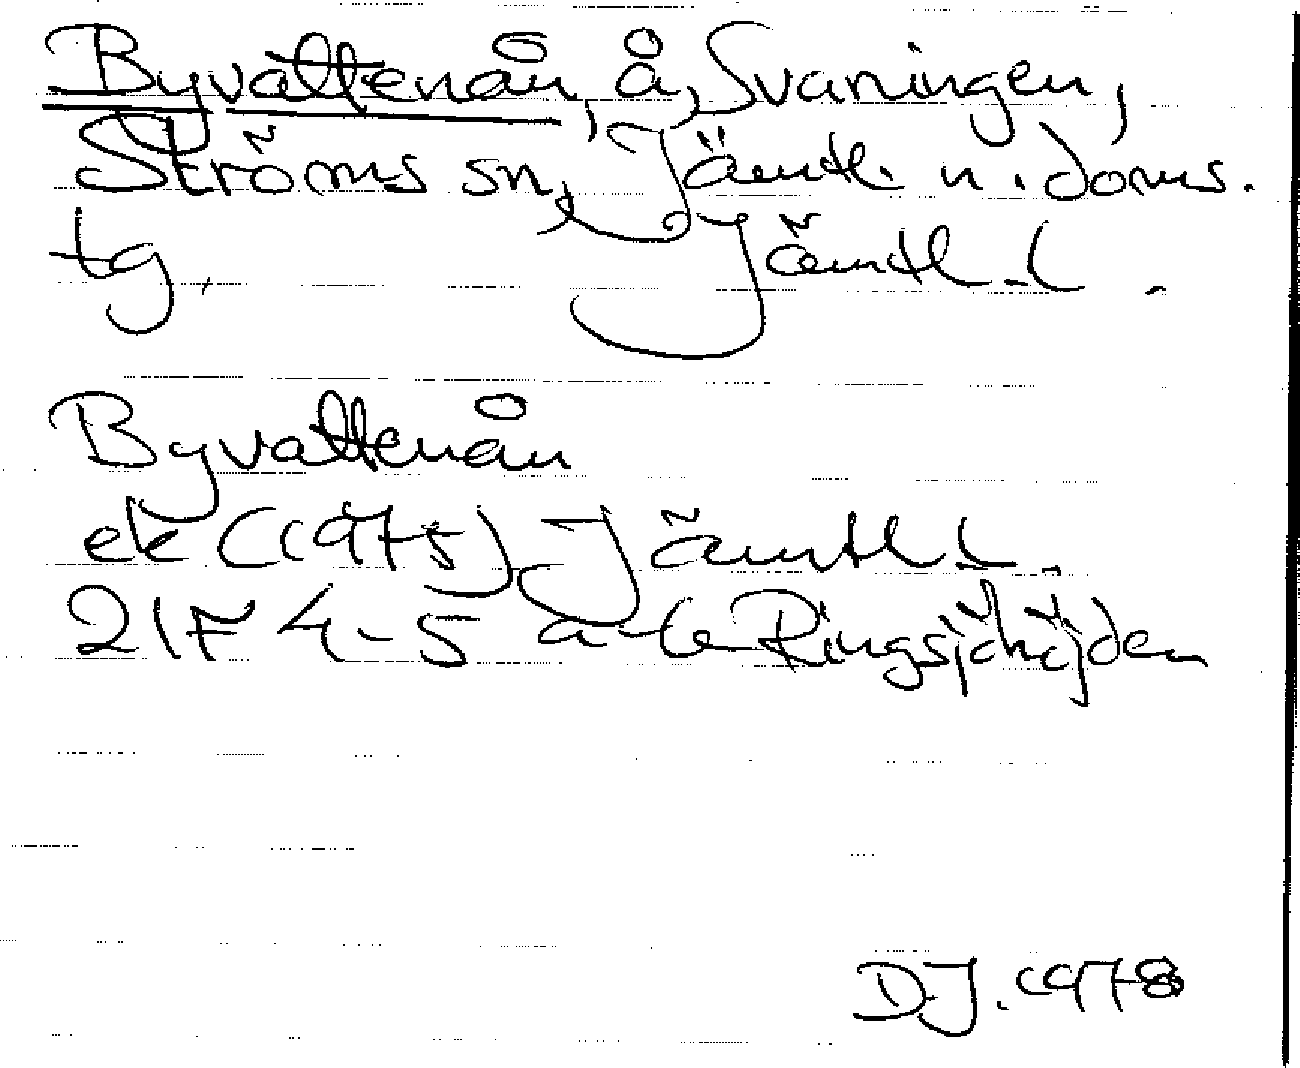 Byvattenån, å, Svaningen,
Ströms sn, Jämtl. n. doms.
tg. Jämtl. l.
Byvattenån
ek (1975) Jämtl l.
21F 4-5 a-b Ringsjöhöjden
DJ. 1978